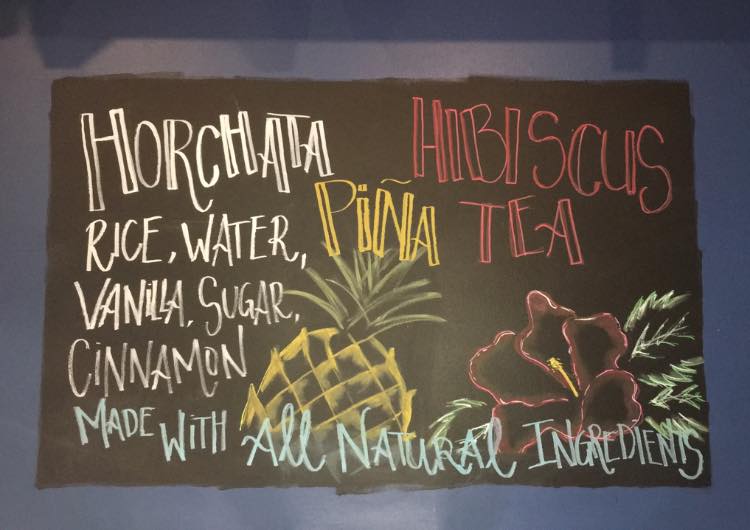 HORCHATA
RICE, WATER,
VANILLA, SUGAR,
CINNAMON
PIÑA
HIBISCUS
TEA
MADE WITH All NATURAL INGREDIENTS